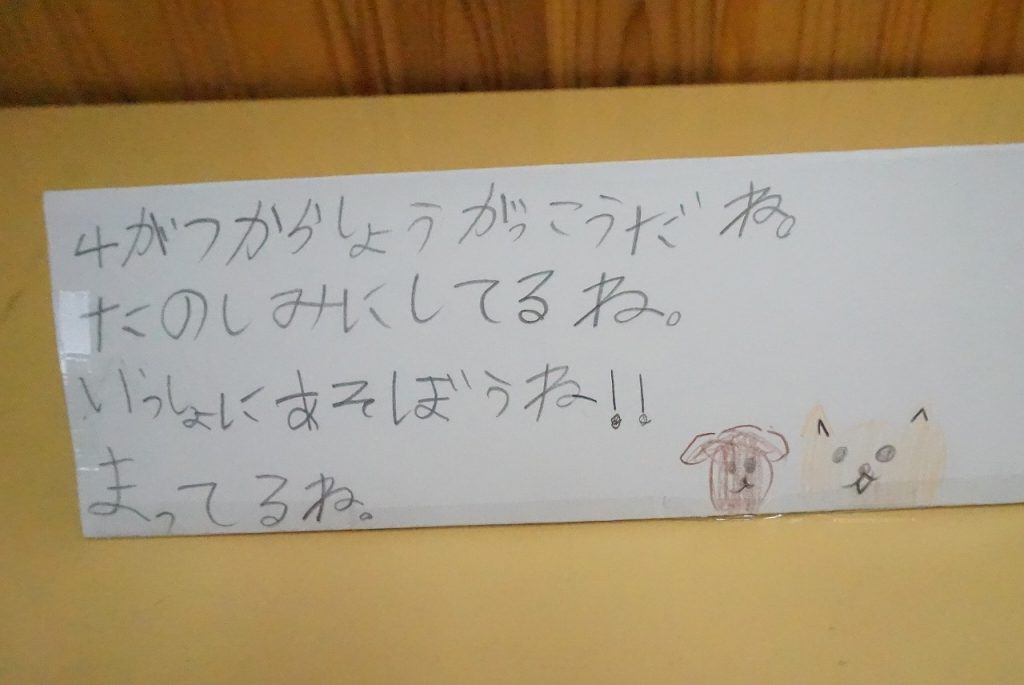 4がつからしょうがっこうだね。
たのしみにしてるね。
いっしょにあそぼうね!!
まってるね。